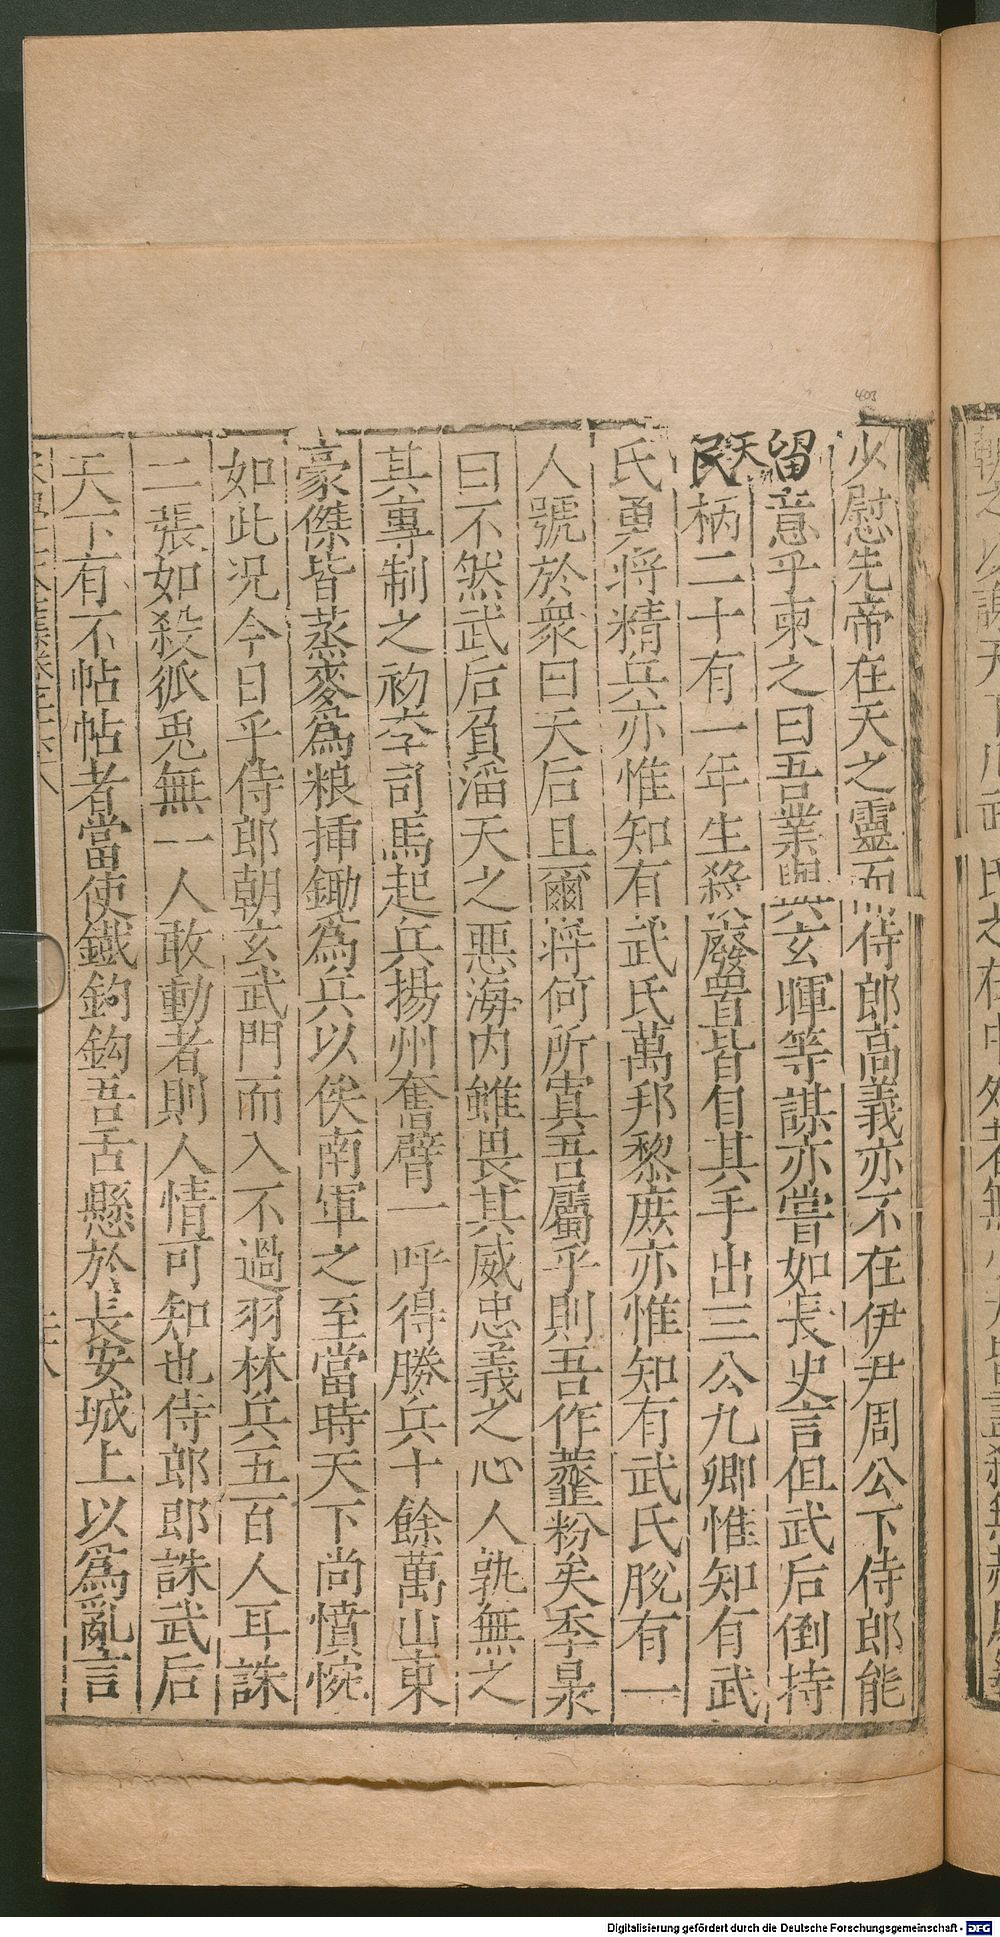 少慰先帝在天之靈而侍郎高義亦不在伊尹周公下侍郎能
留意乎柬之曰吾業與玄暉等謀亦嘗如長史言但武后倒持
天民柄二十有一年生殺發置皆自其手出三公九卿惟知有武
氏勇將精兵亦惟知有武氏萬邦黎庶亦惟知有武氏脫有一
人號於衆曰天后且爾將何所寘吾屬乎則吾作虀粉矣季杲
曰不然武后負滔天之惡海内雖畏其威忠義之心人孰無之
其專制之初李司馬起兵揚州奮臂一呼得勝兵十餘萬山東
豪傑皆蒸麥爲粮揷鋤爲兵以俟南軍之至當時天下尚憤惋
如此况今日乎侍郎朝玄武門而入不過羽林兵五百人耳誅
二張如殺狐兎無一人敢動者則人情可知也侍郎郎誅武后
天下有不帖帖者當使鐵鉤鈎吾舌懸於長安城上以爲亂言
403
Digitalisierung gefördert durch die Deutsche Forschungsgemeinschaft - DFG